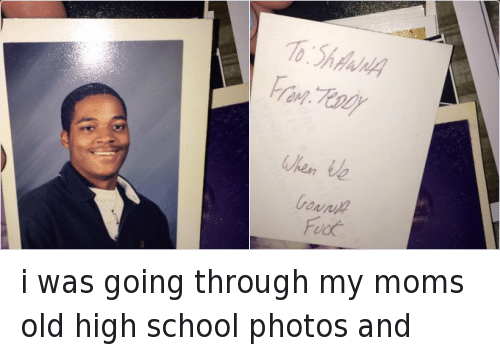 To: ShAWNA
From: TEDDY
When We
GONNA
Fuck
i was going through my moms
old high school photos and